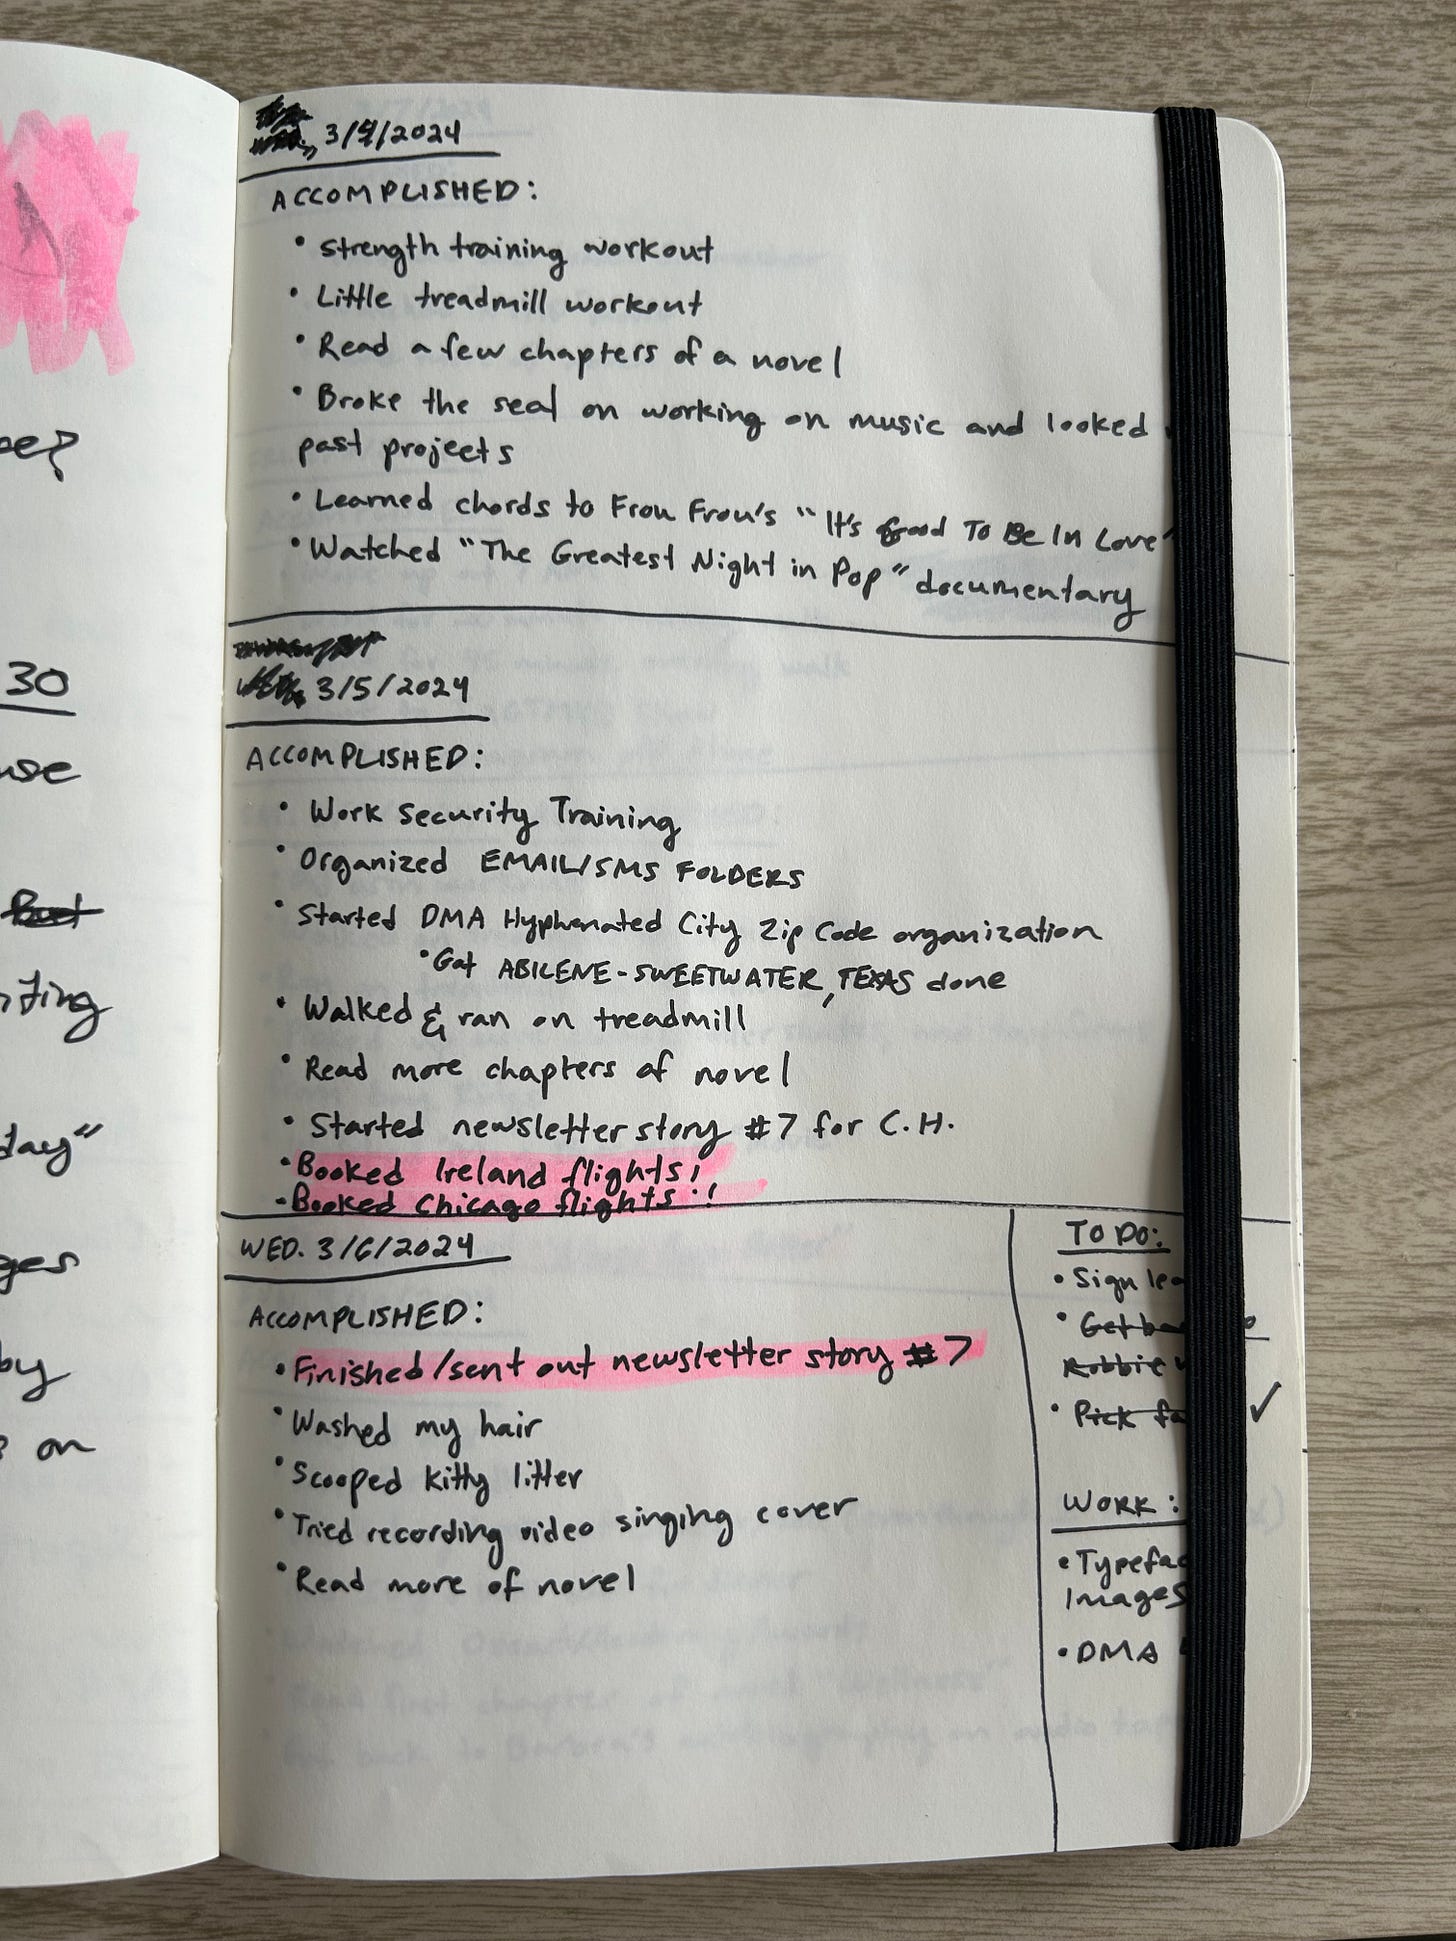 oe?
30
use
iting
day"
ges
by
on
3/4/2024
ACCOMPLISHED:
• Strength training workout
• Little treadmill workout
• Read a few chapters of a novel
• Broke the seal on working on music and looked
past projects
• Learned chords to Frou Frou's "It's Good To Be In Love"
• Watched "The Greatest Night in Pop" documentary
3/5/2024
ACCOMPLISHED:
• Work Security Training
• Organized EMAIL/SMS FOLDERS
• Started DMA Hyphenated City Zip Code organization
• Got ABILENE-SWEETWATER, TEXAS done
• Walked & ran on treadmill
• Read more chapters of novel
• Started newsletter story #7 for C.H.
• Booked Ireland flights!
- Booked Chicago flights!!
WED. 3/6/2024
ACCOMPLISHED:
• Finished/sent out newsletter story #7
• Washed my hair
• Scooped kitty litter
• Tried recording video singing cover
• Read more of novel
TO DO:
• Sign lea
• Get ba
Robbie
• Pick fa ✓
WORK:
• Typefac
Images
• DMA